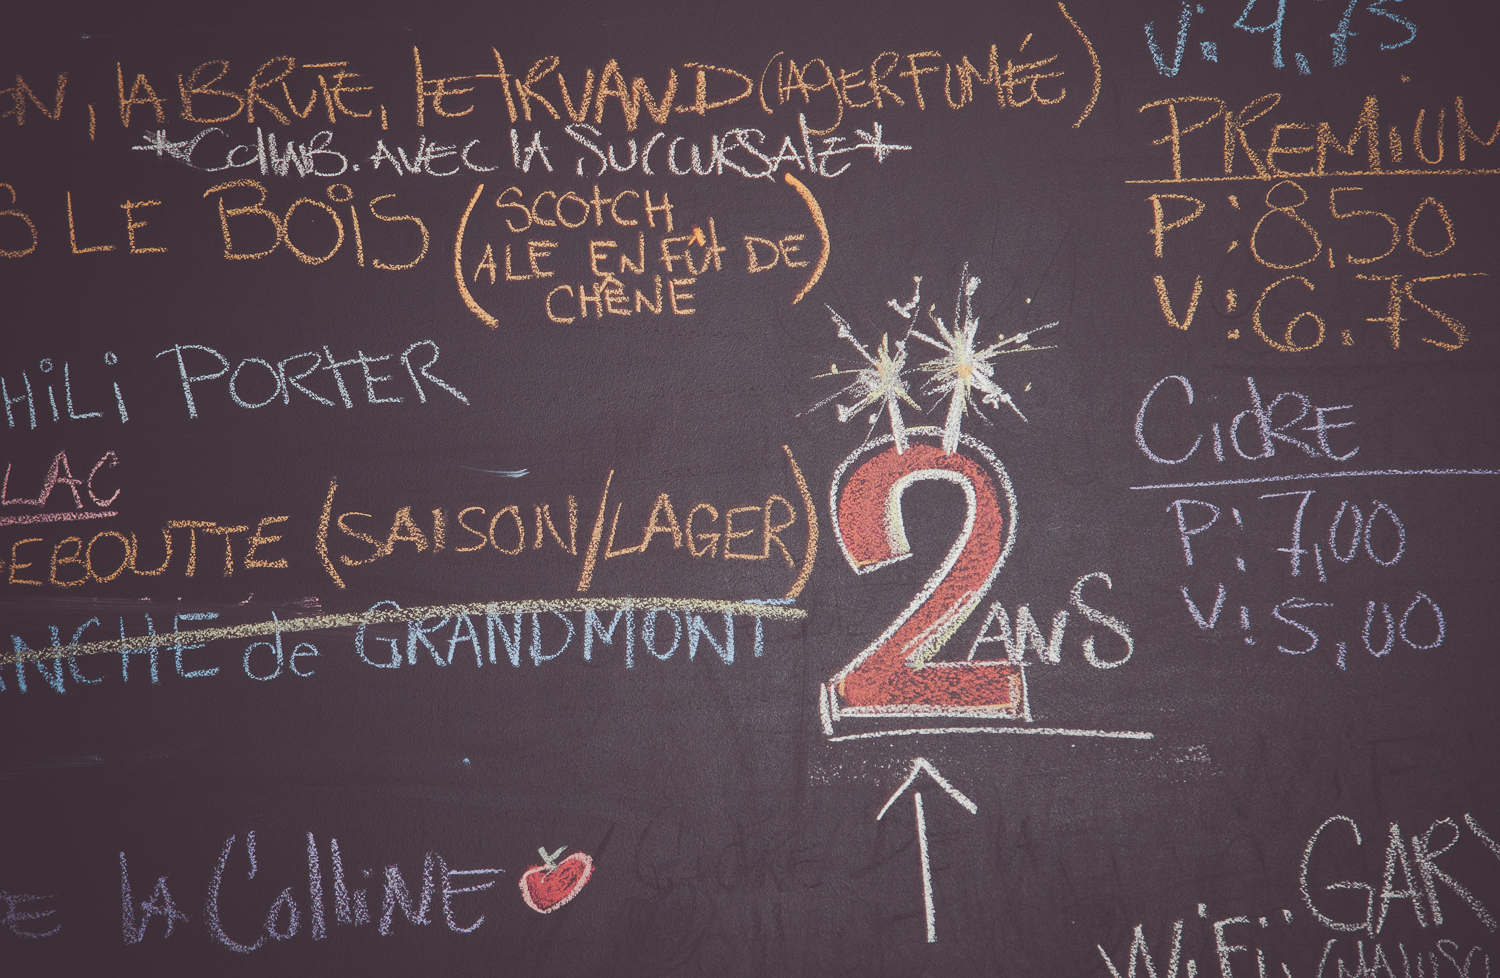 LA BRUTE, LE TRUAND (LAGER FUMÉE)
*COLLAB. AVEC LA SUCCURSALE*
LE BOiS (SCOTCH
ALE EN FÛT DE
CHÊNE)
HiLi PORTER
LAC
EBOUTTE (SAISON/LAGER)
ANCHE de GRANDMONT
LA COLLiNE
2 ANS
V: 4,75
PREMiUM
P: 8,50
V: 6.75
CidRE
P: 7,00
V: 5,00
GARY
WiFi: